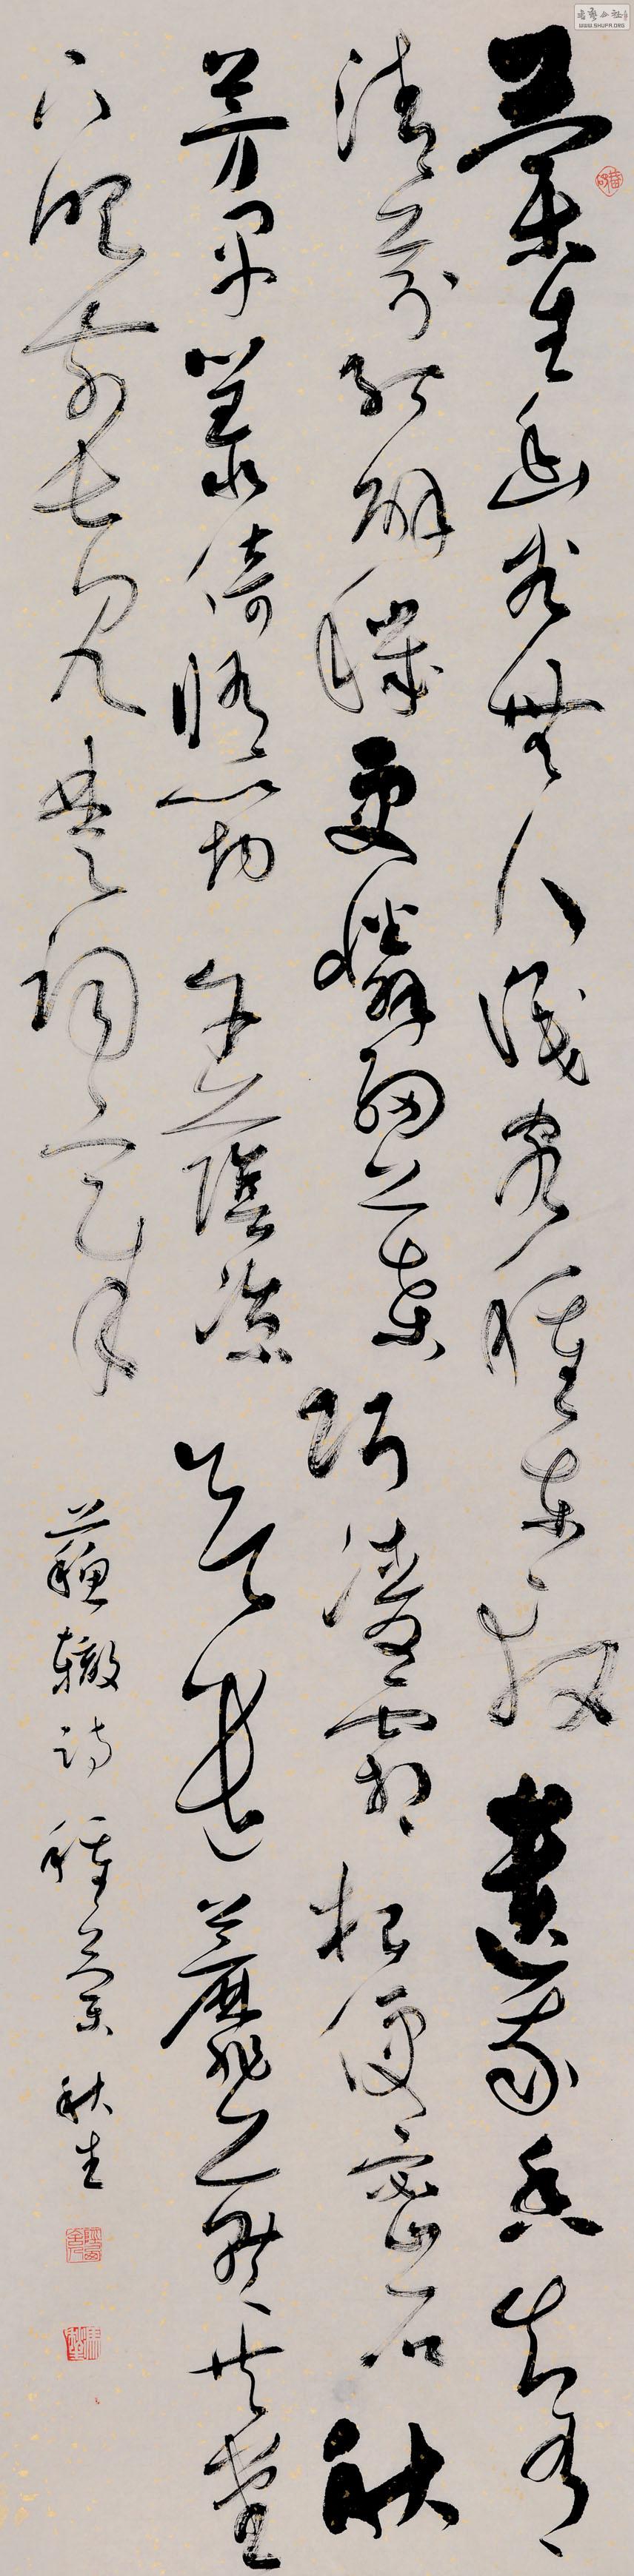 蘭生幽谷無人識客種東軒遺我香知有
清芬能解穢更憐細葉巧凌霜根便密石秋
芳早叢倚脩筠午蔭涼欲遣蘼蕪共堂
下眼前長見楚詞章
蘇轍詩種蘭 秋生
WWW.SHUFA.ORG